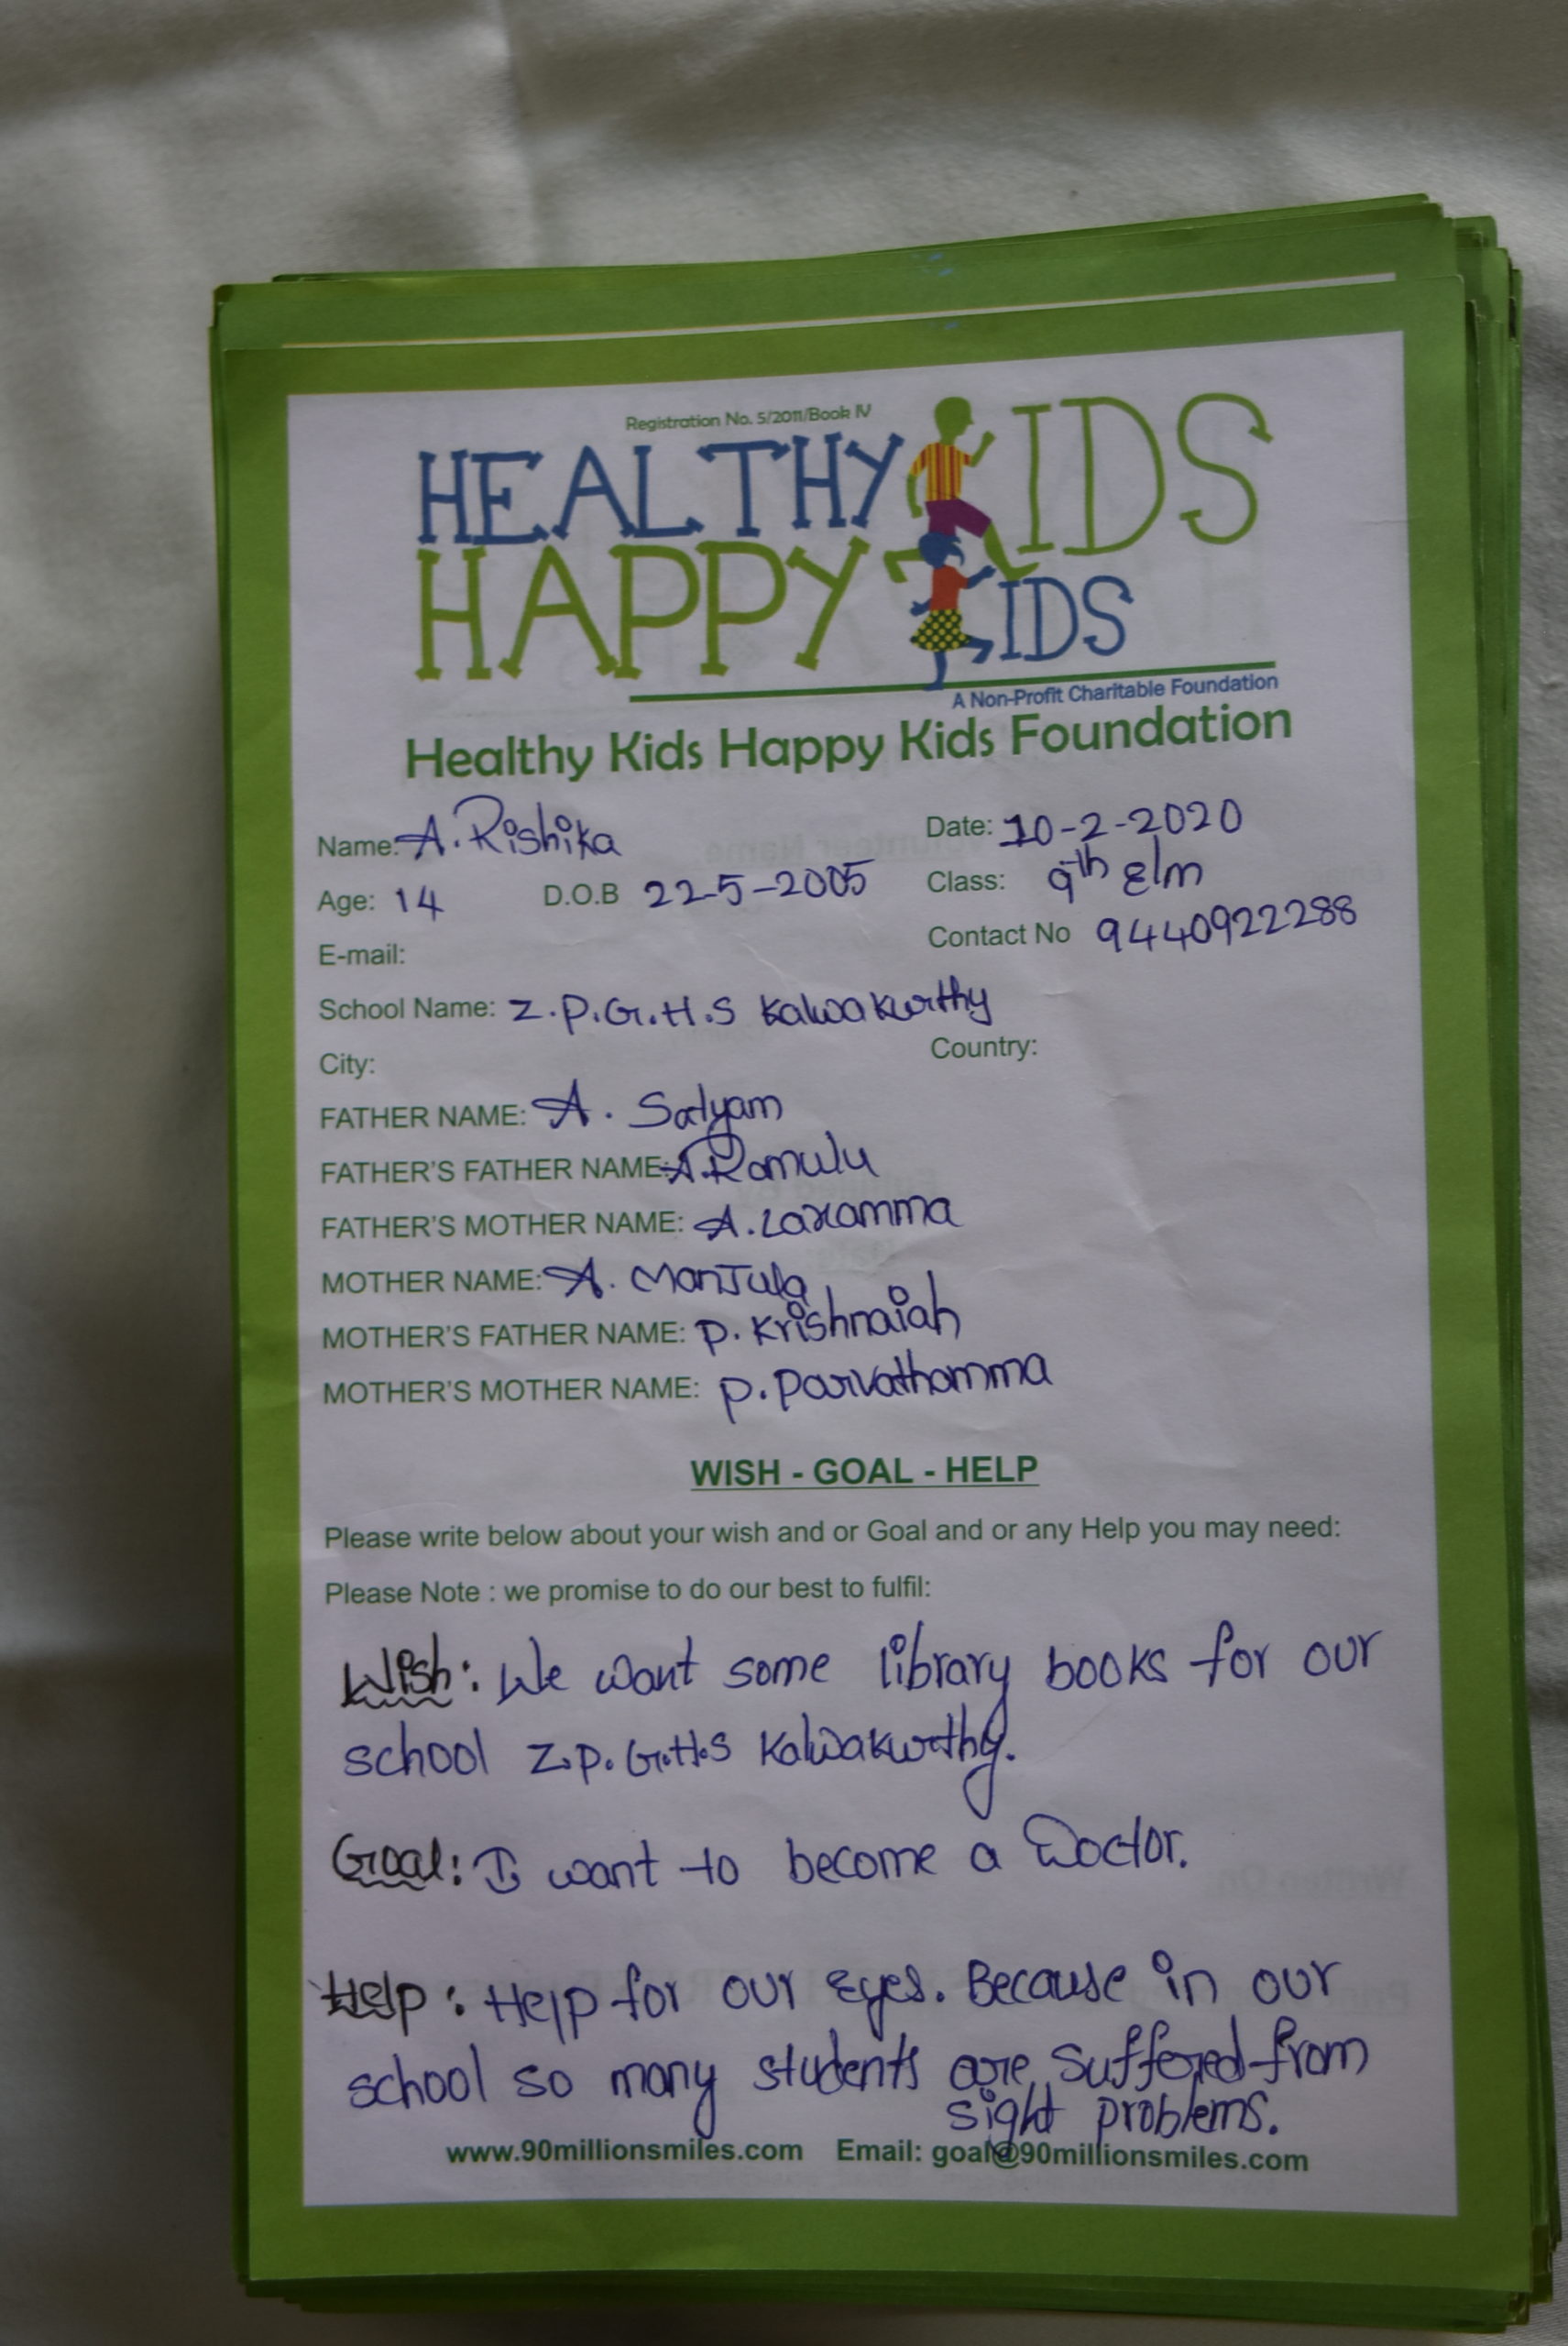 Registration No. 5/2011/Book IV
HEALTHY KIDS
HAPPY KIDS
A Non-Profit Charitable Foundation
Healthy Kids Happy Kids Foundation
Name: A. Rishika Date: 10-2-2020
Age: 14 D.O.B 22-5-2005 Class: 9th E/m
E-mail: Contact No 9440922288
School Name: Z.P.G.H.S Kalwakurthy
City: Country:
FATHER NAME: A. Satyam
FATHER'S FATHER NAME: A. Ramulu
FATHER'S MOTHER NAME: A. Laxamma
MOTHER NAME: A. ManJula
MOTHER'S FATHER NAME: P. Krishnaiah
MOTHER'S MOTHER NAME: P. Parvathamma
WISH - GOAL - HELP
Please write below about your wish and or Goal and or any Help you may need:
Please Note : we promise to do our best to fulfil:
Wish: We want some library books for our
school Z.P.G.H.S Kalwakurthy.
Goal: I want to become a Doctor.
Help: Help for our Eyes. Because in our
school so many students are suffered from
sight problems.
www.90millionsmiles.com Email: goal@90millionsmiles.com